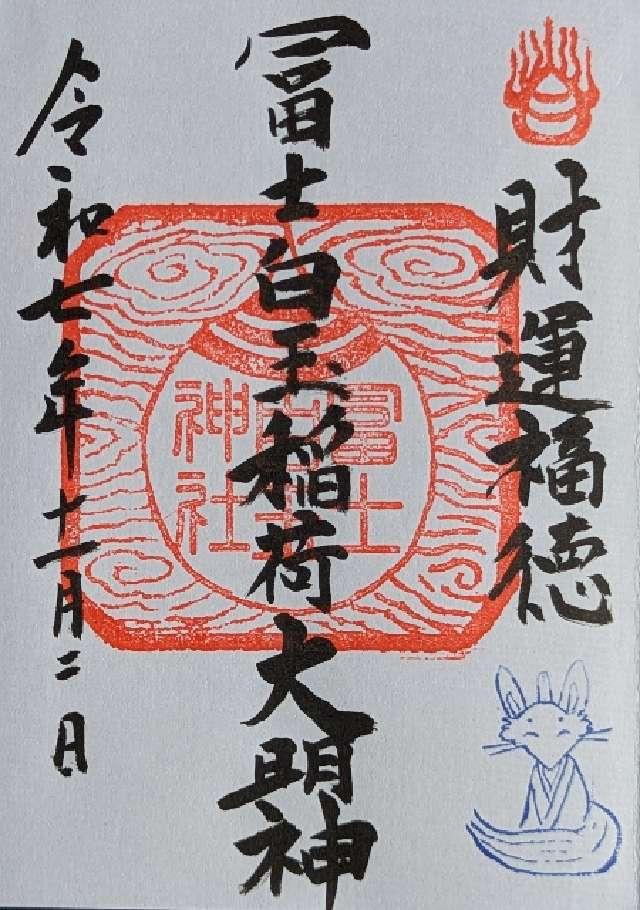 財運福徳
冨士白玉稲荷大明神
冨士白玉神社
令和七年十一月二日